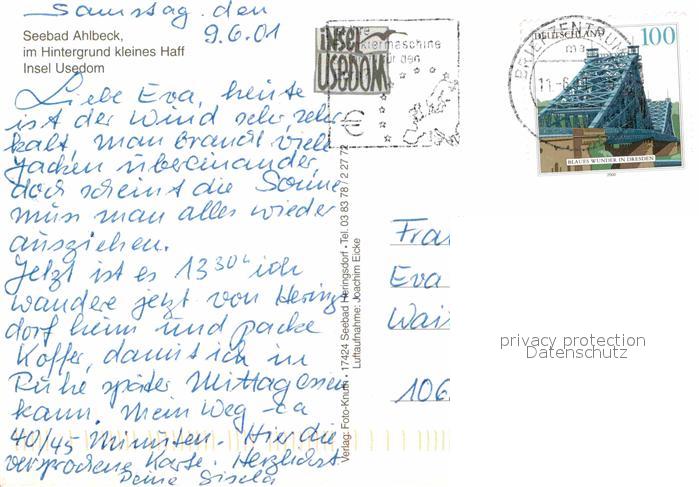 Samstag. den
9.6.01
Seebad Ahlbeck,
im Hintergrund kleines Haff
Insel Usedom
Liebe Eva, heute
ist der Wind sehr, sehr
kalt, man braucht viele
Jacken übereinander,
doch scheint die Sonne
muss man alles wieder
ausziehen.
Jetzt ist es 13 30h ich
wandere jetzt von Herings
dorf heim und packe
Koffer, damit ich in
Ruhe später Mittagessen
kann. Mein Weg - ca
40/45 Minuten. Hier die
versprochene Karte. Herzlichst
Deine Gisela
Verlag: Foto-Knuth • 17424 Seebad Heringsdorf • Tel. 03 83 78 / 2 27 72
Luftaufnahme: Joachim Eicke
insel
USEDOM
für den
BRIEFZENTRUM
ma
11.-6.
DEUTSCHLAND 100
BLAUES WUNDER IN DRESDEN
2000
Frau
Eva
106
privacy protection
Datenschutz